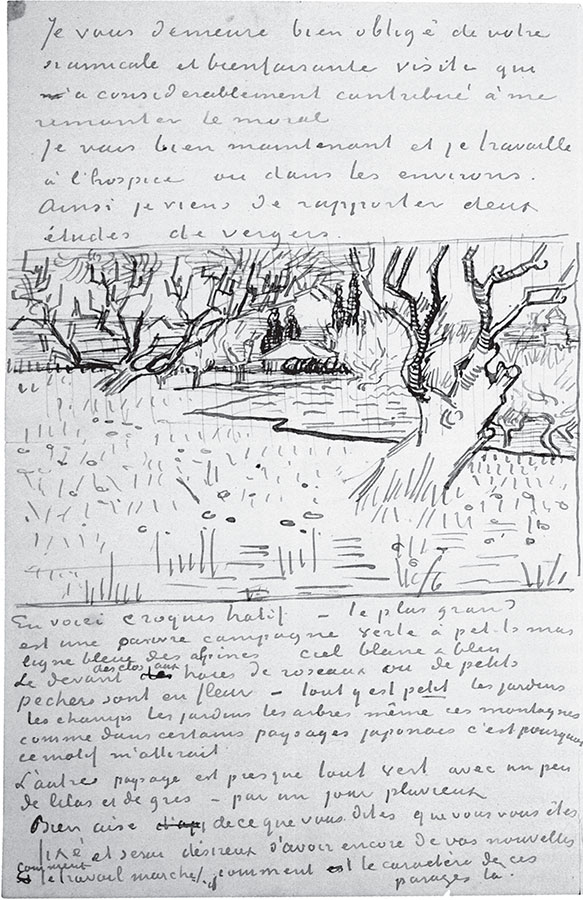 Je vous demeure bien obligé de votre
si amicale et bienfaisante visite qui
m'a considerablement contribué à me
remonter le moral
Je vais bien maintenant et je travaille
à l'hospice ou dans les environs.
Ainsi je viens de rapporter deux
études de vergers.
En voici croquis hatif – le plus grand
est une pauvre campagne verte à petits mas
ligne bleue des alpines ciel blanc & bleu
Le devant des clos aux haies de roseaux ou de petits
pechers sont en fleur – tout y est petit les jardins
les champs les jardins les arbres même ces montagnes
comme dans certains paysages japonais c'est pourquoi
ce motif m'attirait.
L'autre paysage est presque tout vert avec un peu
de lilas et de gris – par un jour pluvieux
Bien aise de ce que vous dites que vous vous êtes
fixé et serai désireux d'avoir encore de vos nouvelles
comment le travail marche, comment est le caractère de ces
parages là.